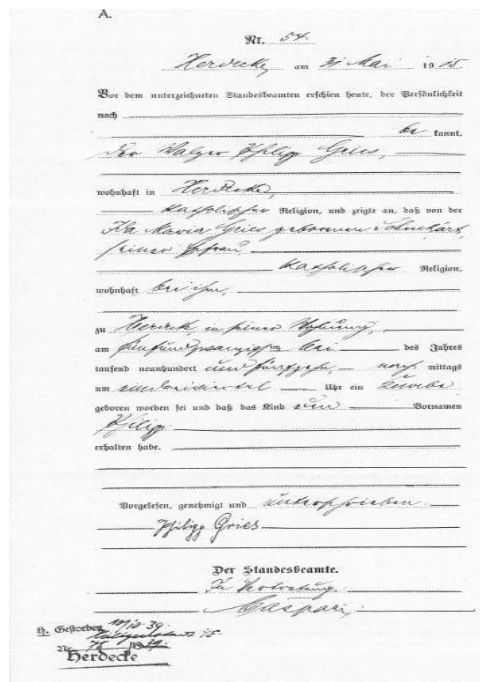 A.
Nr. 54.
Herdecke, am 31 Mai 1915.
Vor dem unterzeichneten Standesbeamten erschien heute, der Persönlichkeit
nach
be kannt,
der Walzer Philipp Gries,
wohnhaft in Herdecke,
katholischer Religion, und zeigte an, daß von der
Maria Gries geborenen
seiner Ehefrau
katholischer Religion,
wohnhaft bei ihm,
zu Herdecke, in seiner Wohnung,
am fünfundzwanzigsten Mai des Jahres
tausend neunhundert und fünfzehn, nach mittags
um Uhr ein Knabe
geboren worden sei und daß das Kind den Vornamen
Philipp
erhalten habe.
Vorgelesen, genehmigt und unterschrieben.
Philipp Gries
Der Standesbeamte.
In Vertretung.
Caspari,
Gestorben 39
Nr.
Herdecke